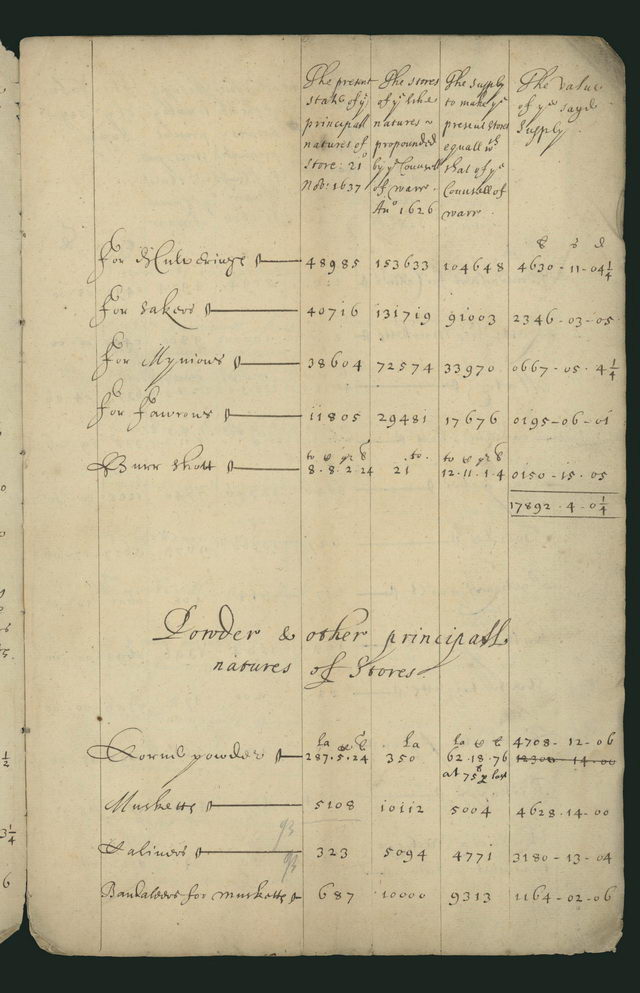 The present The stores The supply The value
state of ye of ye like to make ye of ye sayd
principall natures present stores Supply
natures of propounded equall wth
store: 21o by ye Counsell that of ye
Nob: 1637 of warr. Counsell of
Ano 1626 warr.
£ s d
For Culveringe 48985 153633 104648 4630-11-04¼
For Sakers 40716 131719 91003 2346-03-05
For Mynions 38604 72574 33970 0667-05-4¼
For Fawcons 11805 29481 17676 0195-06-01
to to
Burr shott 8.8.2.24 21 12.11.1.4 0150-15-05
17892.4.0¼
Powder & other principall
natures of Stores
La La La 4708-12-06
Corne powder 287.5.24 350 62.18.76 12300-14-00
at 75£ last
Musketts 5108 10112 5004 4628.14-00
93
Calivers 323 5094 4771 3180-13-04
93
Bandaleers for musketts 687 10000 9313 1164-02-06